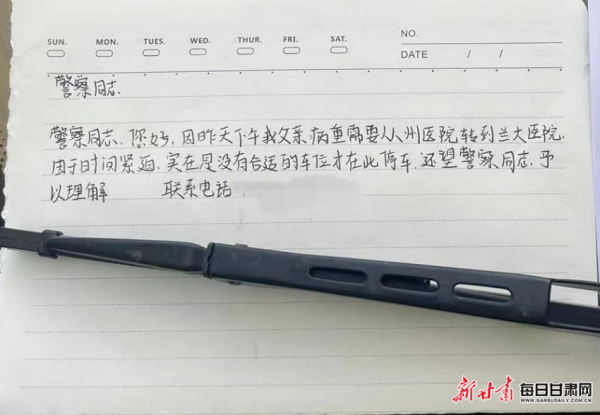 SUN. MON. TUES. WED. THUR. FRI. SAT.
NO.
DATE / /
警察同志.
警察同志. 您好, 因昨天下午我父亲病重需要从州医院转到兰大医院,
由于时间紧迫. 实在是没有合适的车位才在此停车. 还望警察同志. 予
以理解 联系电话
新甘肃 每日甘肃网
WWW.GANSUDAILY.COM.CN